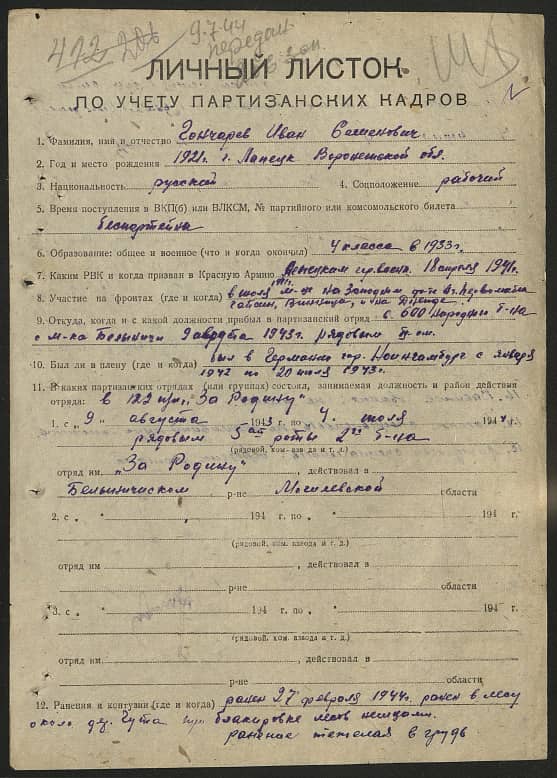 412 206
9.7.44
передан
ЛИЧНЫЙ ЛИСТОК
ПО УЧЕТУ ПАРТИЗАНСКИХ КАДРОВ
1. Фамилия, имя и отчество Гончарев Иван Семенович
2. Год и место рождения 1921г. г. Липецк Воронежской обл.
3. Национальность русский 4. Соцположение рабочий
5. Время поступления в ВКП(б) или ВЛКСМ, № партийного или комсомольского билета
беспартейный
6. Образование: общее и военное (что и когда окончил) 4 класса в 1933г.
7. Каким РВК и когда призван в Красную Армию 18 апреля 1941г.
8. Участие на фронтах (где и когда) в июля м-це на Западном
Винница, и на Днепре
9. Откуда, когда и с какой должности прибыл в партизанский отряд с 600 народни б-на
с м-ка Белыничи 9 августа 1943г. рядовым
10. Был ли в плену (где и когда) был в Германии гор. с января
1942 по 20 июля 1943г.
11. В каких партизанских отрядах (или группах) состоял, занимаемая должность и район действия
отряда: в 122 „За Родину"
1. с „9" августа 1943 г. по „4" июля 1944 г.
рядовым 5ой роты 2го б-на
(рядовой, ком. взвода и т. д.)
отряд им „За Родину", действовал в
Белыничиском р-не Могилевской области
2. с „ " 194 г. по „ " 194 г.
(рядовой, ком. взвода и т. д.)
отряд им , действовал в
р-не области
3. с „ " 194 г. по „ " 194 г.
(рядовой, ком. взвода и т. д.)
отряд им , действовал в
р-не области
12. Ранения и контузии (где и когда) ранен 27 февраля 1944г. ранен в лесу
около д. Гута при блакировке лесов немцами.
ранение тежелая в грудь